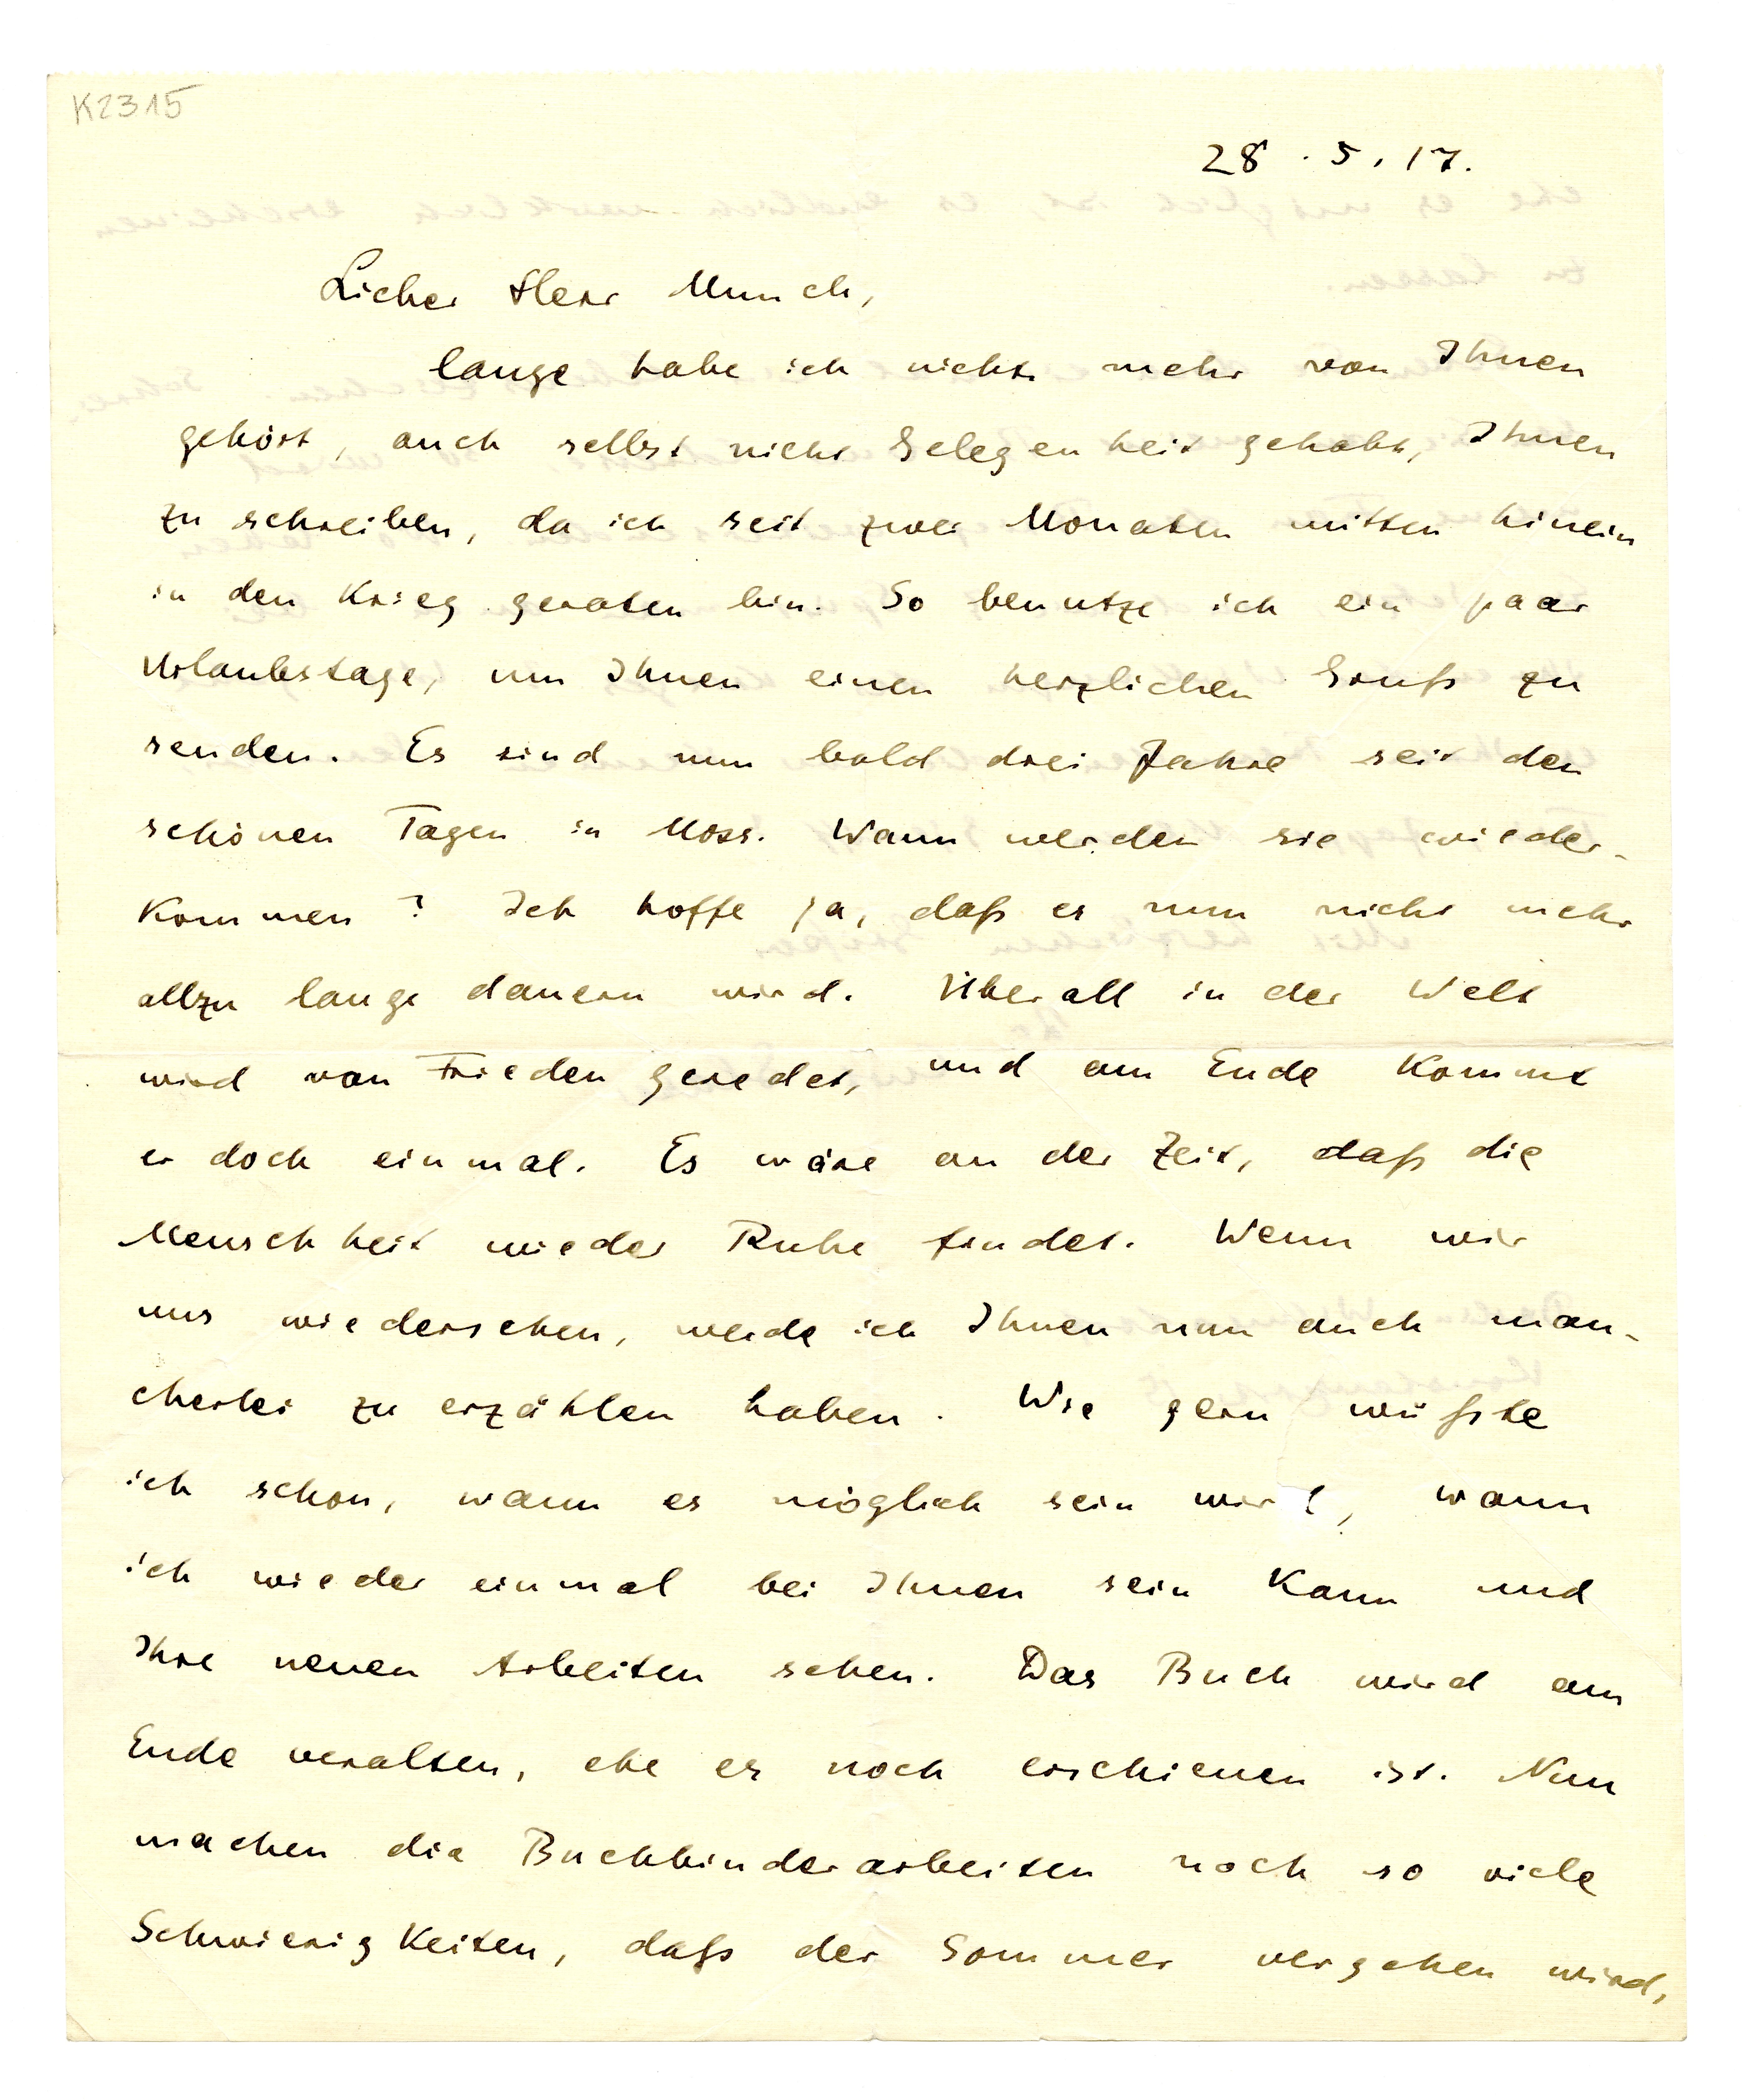 K2315
28.5.17.
Lieber Herr Munch,
lange habe ich nichts mehr von Ihnen
gehört, auch selbst nicht Gelegenheit gehabt, Ihnen
zu schreiben, da ich seit zwei Monaten mitten hinein
in den Krieg geraten bin. So benutze ich ein paar
Urlaubstage, um Ihnen einen herzlichen Gruß zu
senden. Es sind nun bald drei Jahre seit den
schönen Tagen in Moss. Wann werden sie wieder-
kommen? Ich hoffe ja, daß es nun nicht mehr
allzu lange dauern wird. Überall in der Welt
wird von Frieden geredet, und am Ende kommt
er doch einmal. Es wäre an der Zeit, daß die
Menschheit wieder Ruhe findet. Wenn wir
uns wiedersehen, werde ich Ihnen nun auch man-
cherlei zu erzählen haben. Wie gern wüßte
ich schon, wann es möglich sein wird, wann
ich wieder einmal bei Ihnen sein kann und
Ihre neuen Arbeiten sehen. Das Buch wird am
Ende veralten, ehe es noch erschienen ist. Nun
machen die Buchbinderarbeiten noch so viele
Schwierigkeiten, daß der Sommer vergehen wird,